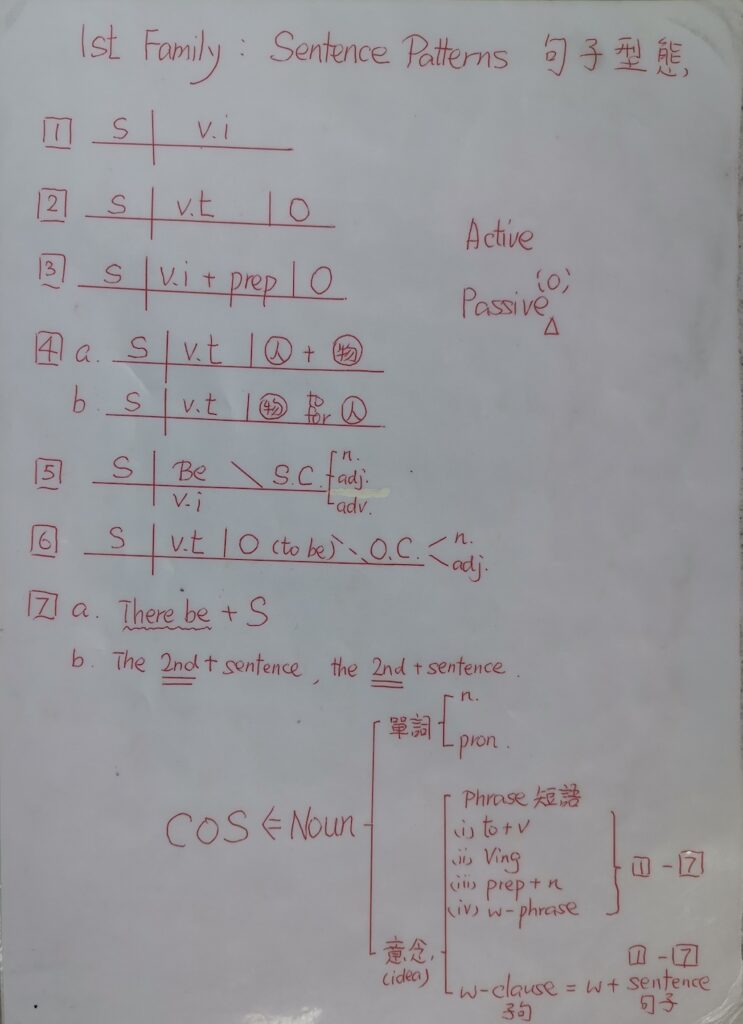 1st Family : Sentence Patterns 句子型態
1 S v.i
2 S v.t O
3 S v.i + prep O
4 a. S v.t 人 + 物
b. S v.t 物 to for 人
5 S Be v.i S.C. n. adj. adv.
6 S v.t O (to be) O.C. n. adj.
7 a. There be + S
b. The 2nd + sentence, the 2nd + sentence.
Active
Passive (O) △
COS ⇐ Noun
單詞
n.
pron.
意念
(idea)
Phrase 短語
(i) to + v
(ii) Ving
(iii) prep + n
(iv) w-phrase
1 - 7
w-clause = w + sentence
子句 句子
1 - 7